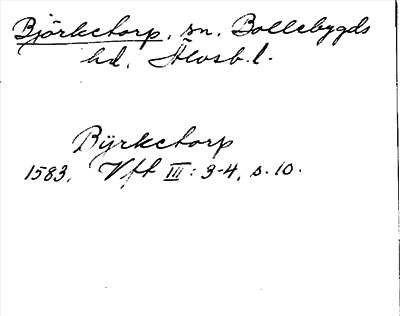 Björketorp, sn. Bollebygds
hd, Älvsb. l.
Byrketorp
1583, Vft III: 3-4, s. 10.